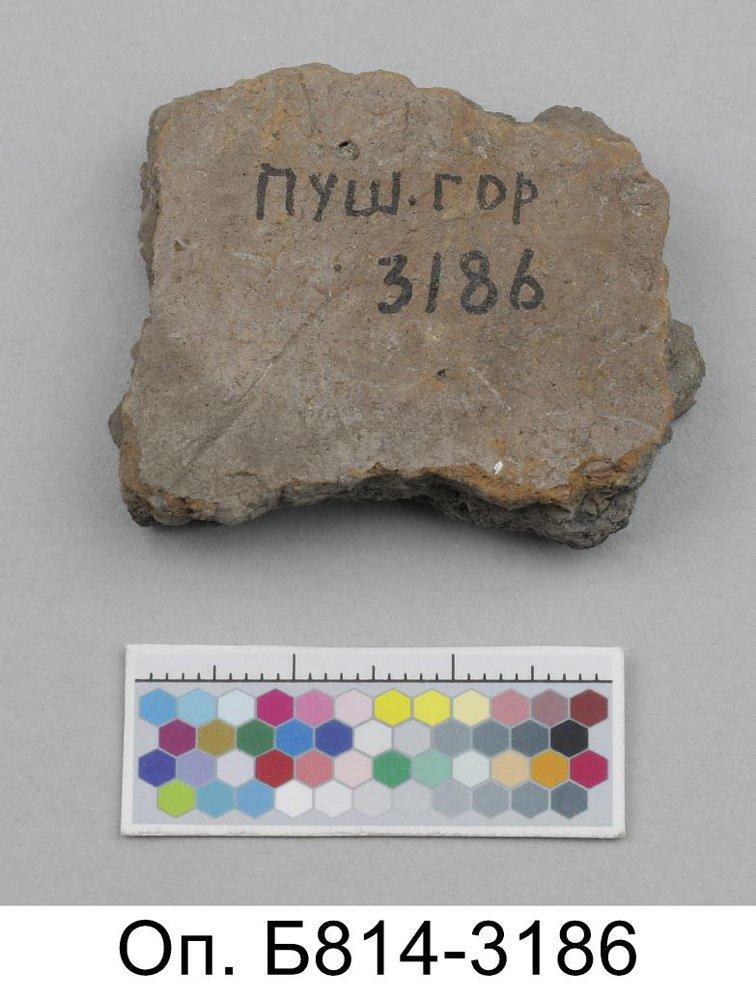 ПУШ.ГОР
3186
Оп. Б814-3186